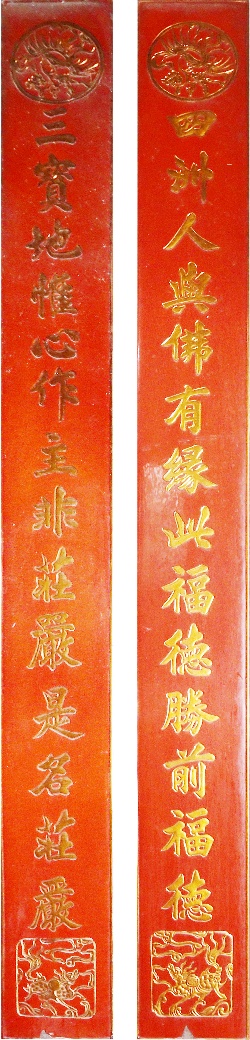 四人與佛有緣此福德勝前福德
三寶地惟心作主非莊嚴是名莊嚴